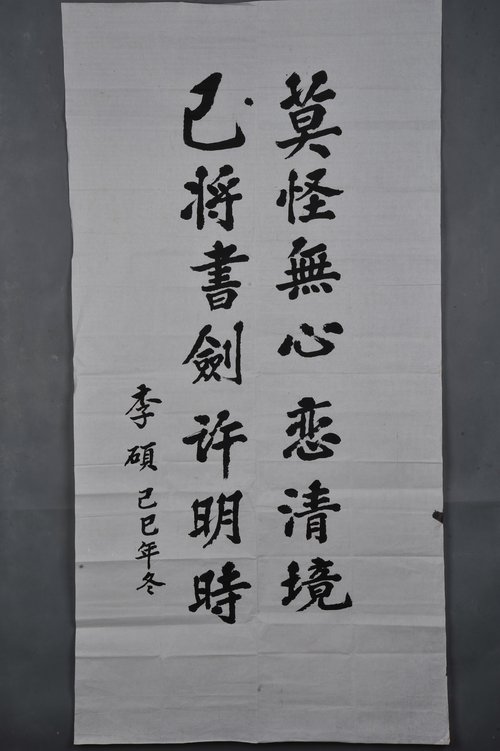 莫怪無心恋清境
已将書劍许明時
李碩己巳年冬